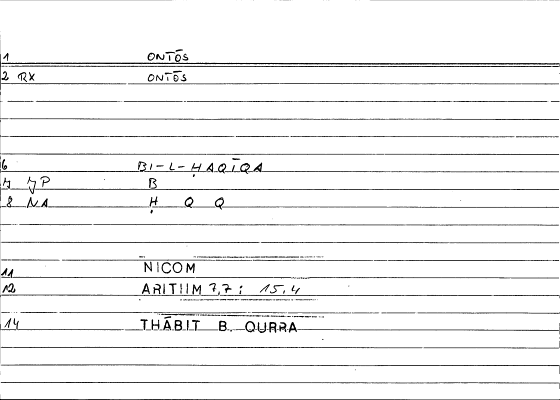 1 ONTŌS
2 RX ONTŌS
6 BI-L-ḤAQĪQA
7 JP B
8 NA Ḥ Q Q
11 NICOM
12 ARITIIM 7,7 : 15,4
14 THĀBIT B. QURRA